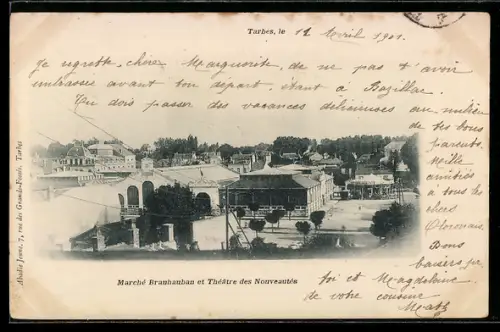 Tarbes, le 12 Avril 1901.
Je regrette, chère Marguerite, de ne pas t'avoir
embrassée avant ton départ, étant à Bazillac.
Tu dois passer des vacances délicieuses au milieu
de tes bons
parents.
Mille
amitiés
à tous les
chers
Bons
baisers pr
toi et Magdeleine
de votre cousine
Abadie Jeune, 7, rue des Grands-Fossés, Tarbes
Marché Brauhauban et Théâtre des Nouveautés